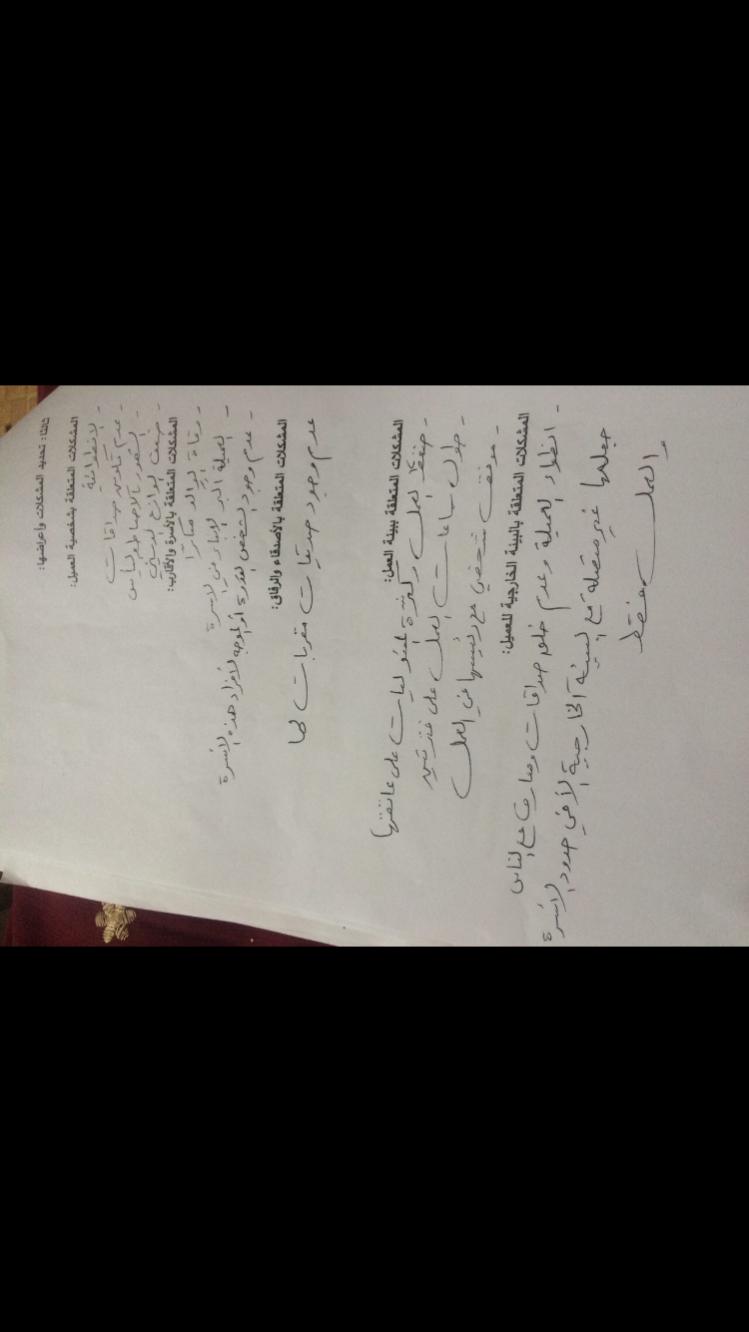 ثالثا: تحديد المشكلات وأعراضها:
المشكلات المتعلقة بشخصية العميل:
- الانطوائية
- عدم تكوين صداقات
- الشعور بالاحباط والياس
- ضعف الوازع الديني
المشكلات المتعلقة بالأسرة والأقارب:
- وفاة الوالد مبكرا
- العميلة اكبر الابناء في الاسرة
- عدم وجود الشخص القدوة أو الموجه لأفراد هذه الاسرة
المشكلات المتعلقة بالأصدقاء والرفاق:
عدم وجود صديقات مقربات لها
المشكلات المتعلقة ببيئة العمل:
- ضغط العمل وكثرة المسؤليات على عاتقها
- طول ساعات العمل على فترتين
- موقف شخصي مع رئيسها في العمل
المشكلات المتعلقة بالبيئة الخارجية للعميل:
- انطواء العميلة وعدم خلق صداقات ومعارف مع الناس
جعلها غير متصلة مع البيئة الخارجية الا في حدود الاسرة
والعمل فقط